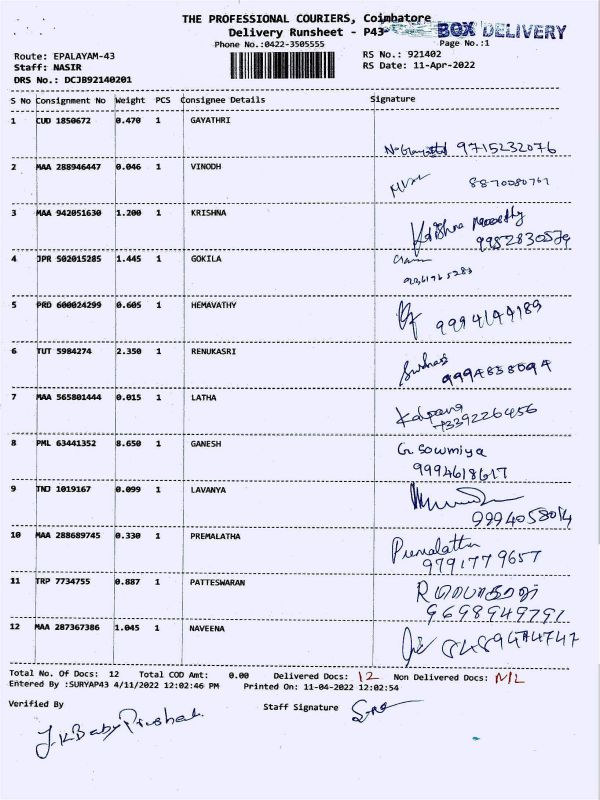 THE PROFESSIONAL COURIERS, Coimbatore
Delivery Runsheet - P43
BOX DELIVERY
Phone No.:0422-3505555
Page No.:1
Route: EPALAYAM-43
RS No.: 921402
Staff: NASIR
RS Date: 11-Apr-2022
DRS No.: DCJB92140201
S No Consignment No Weight PCS Consignee Details Signature
1 CUD 1850672 0.470 1 GAYATHRI
9715232076
2 MAA 288946447 0.046 1 VINODH
3 MAA 942051630 1.200 1 KRISHNA
Krishna Moorthy
9952830579
4 JPR 502015285 1.445 1 GOKILA
5 PRD 600024299 0.605 1 HEMAVATHY
9994144189
6 TUT 5984274 2.350 1 RENUKASRI
9994838094
7 MAA 565801444 0.015 1 LATHA
Kalpana
9339226456
8 PML 63441352 8.650 1 GANESH
G. Sowmiya
9994618617
9 TNJ 1019167 0.099 1 LAVANYA
9994058014
10 MAA 288689745 0.330 1 PREMALATHA
Premalatha
9791779657
11 TRP 7734755 0.887 1 PATTESWARAN
9698949791
12 MAA 287367386 1.045 1 NAVEENA
8489474747
Total No. Of Docs: 12 Total COD Amt: 0.00 Delivered Docs: 12 Non Delivered Docs: NIL
Entered By :SURYAP43 4/11/2022 12:02:46 PM Printed On: 11-04-2022 12:02:54
Verified By Staff Signature